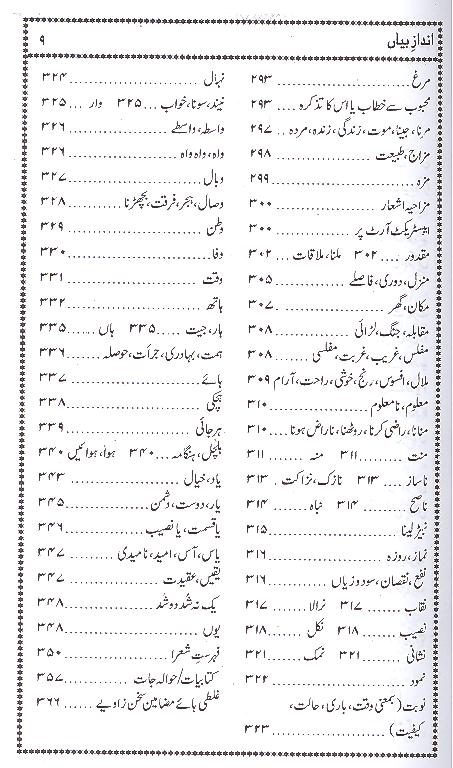 اندازِ بیاں ۹
مرغ ........ ۲۹۳
محبوب سے خطاب یا اس کا تذکرہ .... ۲۹۳
مرنا، جینا، موت، زندگی، زندہ، مردہ .. ۲۹۷
مزاج، طبیعت ........ ۲۹۸
مزہ ........ ۲۹۹
مزاحیہ اشعار ........ ۳۰۰
ایبسٹریکٹ آرٹ پر ........ ۳۰۰
مقدور .... ۳۰۲ ملنا، ملاقات .... ۳۰۲
منزل، دوری، فاصلے ........ ۳۰۵
مکان، گھر ........ ۳۰۷
مقابلہ، جنگ، لڑائی ........ ۳۰۸
مفلس، غریب، غربت، مفلسی ........ ۳۰۸
ملال، افسوس، رنج، خوشی، راحت، آرام ۳۰۹
معلوم، نامعلوم ........ ۳۱۰
منانا، راضی کرنا، روٹھنا، ناراض ہونا .... ۳۱۰
منت ........ ۳۱۱ منہ ........ ۳۱۱
ناساز .... ۳۱۳ نازک، نزاکت .. ۳۱۳
ناصح ........ ۳۱۴ نباہ ........ ۳۱۴
نبیڑ لینا ........ ۳۱۵
نماز، روزہ ........ ۳۱۶
نفع، نقصان، سود و زیاں ........ ۳۱۶
نقاب ........ ۳۱۷ نرالا ........ ۳۱۷
نصیب ........ ۳۱۸ نکل ........ ۳۱۸
نشانی ........ ۳۲۱ نمک ........ ۳۲۱
نمود ........ ۳۲۲
نوبت (بمعنی وقت، باری، حالت،
کیفیت) ........ ۳۲۳
نہال ........ ۳۲۴
نیند، سونا، خواب ... ۳۲۵ وار ... ۳۲۵
واسطہ، واسطے ........ ۳۲۶
واہ، واہ واہ ........ ۳۲۶
وبال ........ ۳۲۷
وصال، ہجر، فرقت، بچھڑنا ........ ۳۲۸
وطن ........ ۳۲۹
وفا ........ ۳۳۰
وقت ........ ۳۳۱
ہاتھ ........ ۳۳۲
ہار، جیت ...... ۳۳۵ ہاں ...... ۳۳۵
ہمت، بہادری، جرأت، حوصلہ ........ ۳۳۶
ہائے ........ ۳۳۷
ہچکی ........ ۳۳۸
ہرجائی ........ ۳۳۹
ہلچل، ہنگامہ ... ۳۴۰ ہوا، ہوائیں ۳۴۰
یاد، خیال ........ ۳۴۳
یار، دوست، دشمن ........ ۳۴۵
یا قسمت، یا نصیب ........ ۳۴۶
یاس، آس، امید، ناامیدی ........ ۳۴۷
یقیں، عقیدت ........ ۳۴۷
یک نہ شد دو شد ........ ۳۴۸
یوں ........ ۳۴۸
فہرستِ شعرا ........ ۳۵۰
کتابیات/حوالہ جات ........ ۳۵۷
غلطی ہائے مضامین سخن زاویے ...... ۳۶۶